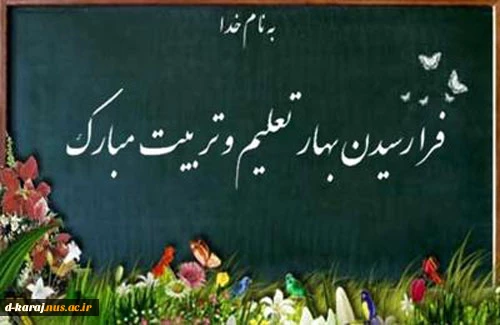 به نام خدا
فرا رسیدن بهار تعلیم و تربیت مبارک
d-karaj.nus.ac.ir